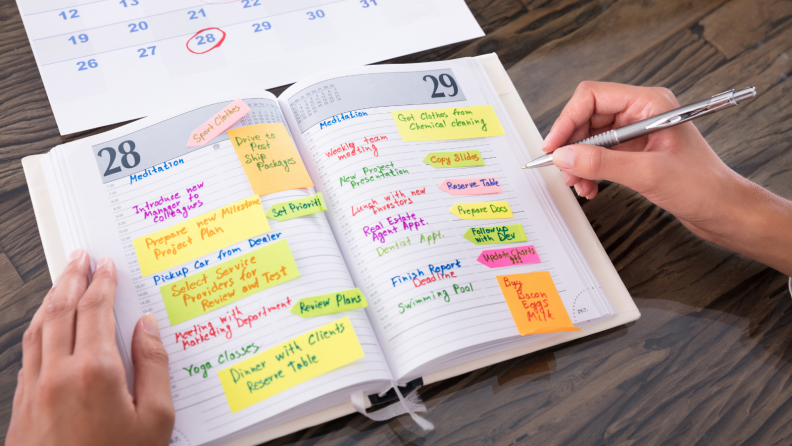 12 13 21
19 20 22 23 24
26 27 28 29 30 31
28
Sport Clothes
Drive to
Post
Ship
Packages
Meditation
Introduce new
Manager to
colleagues
Set Prioriti
Prepare new Milestone
Project Plan
Pickup Car from Dealer
Select Service
Providers for
Review and Test
Review Plans
Meeting with
Marketing Department
Yoga Classes
Dinner with Clients
Reserve Table
29
Meditation
Got Clothes from
Chemical cleaning
Weekly team
meeting
Copy Slides
New Project
Presentation
Reserve Table
Lunch with new
investors
Prepare Docs
Real Estate
Agent Appt.
Followup
with Dev
Dentist Appt.
Update Charts
!!!
Finish Report
Deadline
Buy
Bacon
Eggs
Milk
Swimming Pool